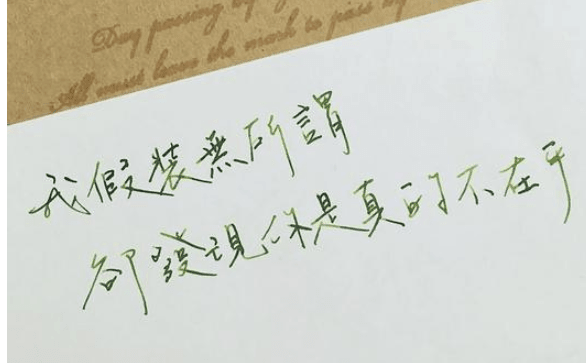 Day passing by
All must leave the mark to pass by
我假裝無所謂
卻發現你是真的不在乎